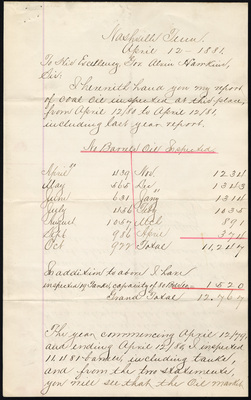 Nashville Tenn.
April 12 - 1881.
To His Excellency Gov Alvin Hawkins,
Sir:
I herewith hand you my report
of Coal Oil inspected at this place,
from April 12/80 to April 12/81,
including last year report.
No Barrels Oil Inspected
April " 439 Nov. 1234
May 565 Dec " 1343
June 631 Jany 1314
July 1156 Feby 1135
August 1057 Mch 891
Sept 936 April 374
Oct 972 Total 11,247
In addition to above I have
inspected by Tanks, capacity of 80 Bbls 1520
Grand Total 12,767
The year commencing April 12/79,
and ending April 12/80, I inspected
11,481 barrels, including tanks,
and from the two statements,
you will see that the Oil